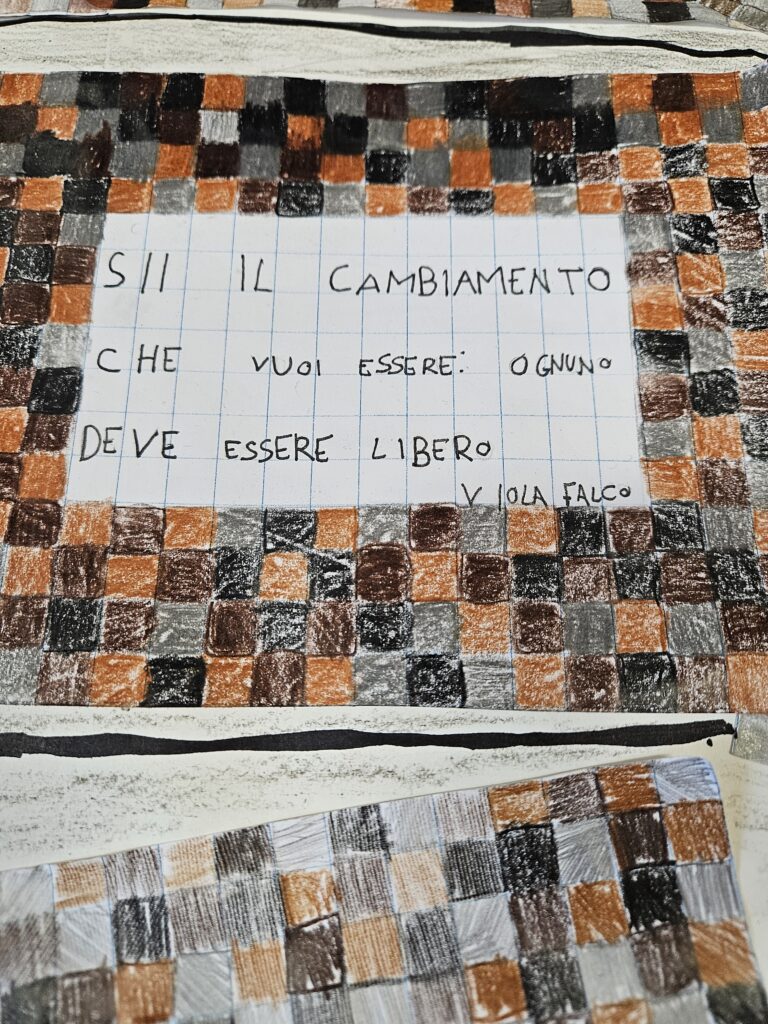 SII IL CAMBIAMENTO
CHE VUOI ESSERE: OGNUNO
DEVE ESSERE LIBERO
VIOLA FALCO